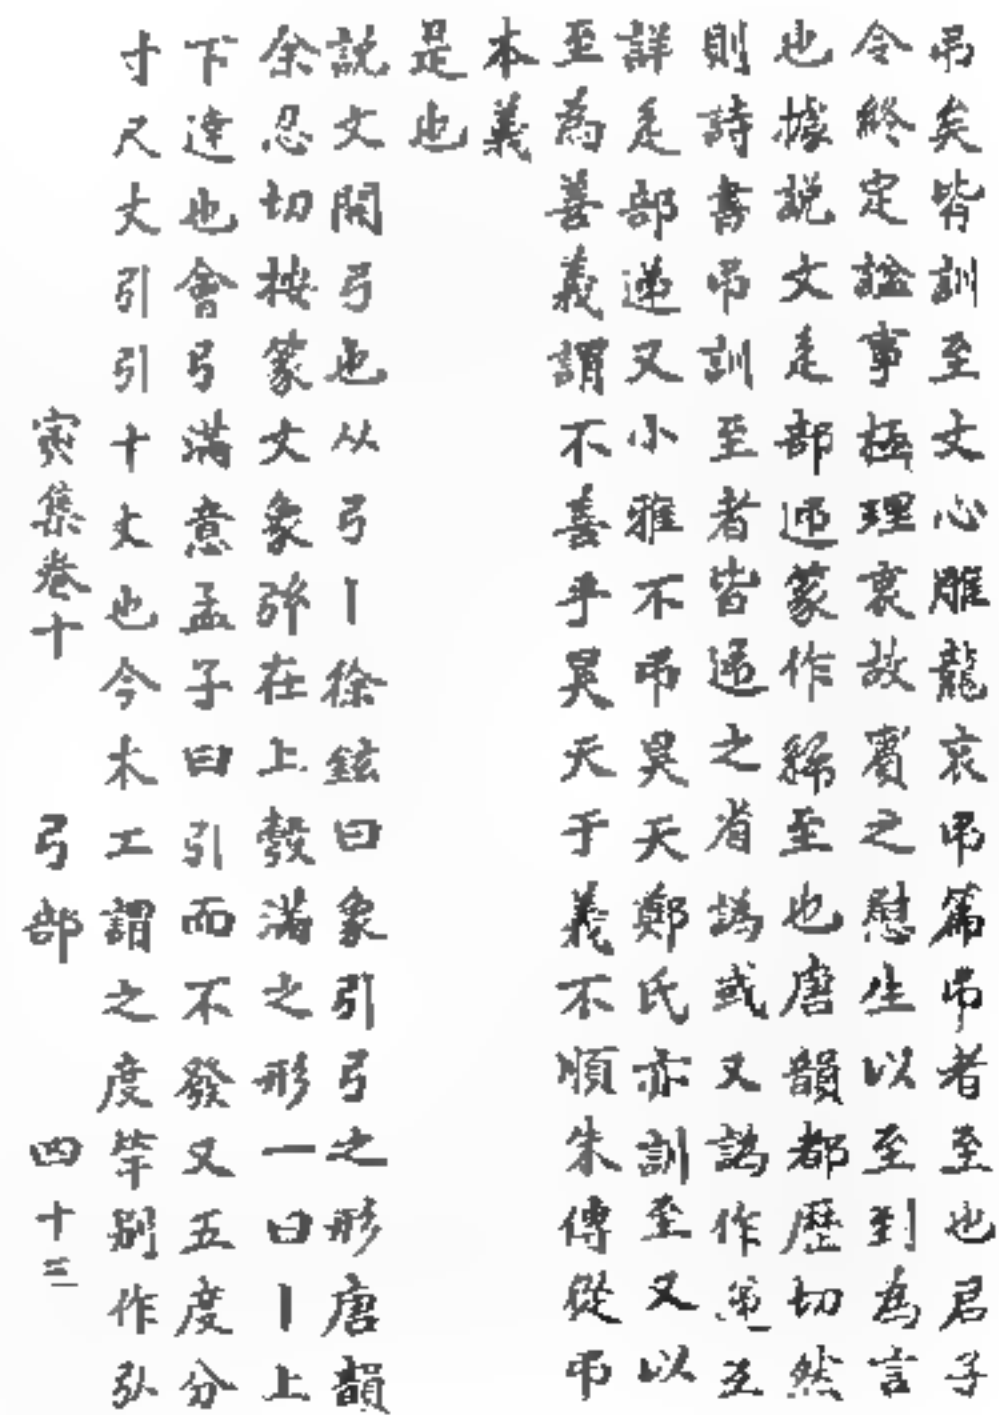 弔矣皆訓至文心雕龍哀弔篇弔者至也君子
令終定諡事極理哀故賓之慰生以至到為言
也據說文辵部𨒙篆作𨓹至也唐韻都歷切然
則詩書弔訓至者皆𨒙之省譌或又譌作𨒙互
詳辵部遞又小雅不弔昊天鄭氏亦訓至又以
至為善義謂不善乎昊天于義不順朱傳從弔
本義
是也
說文開弓也从弓丨徐鉉曰象引弓之形唐韻
余忍切按篆文象弰在上彀滿之形一曰丨上
下達也會弓滿意孟子曰引而不發又五度分
寸尺丈引引十丈也今木工謂之度竿別作弘
寅集卷十 弓部 四十三